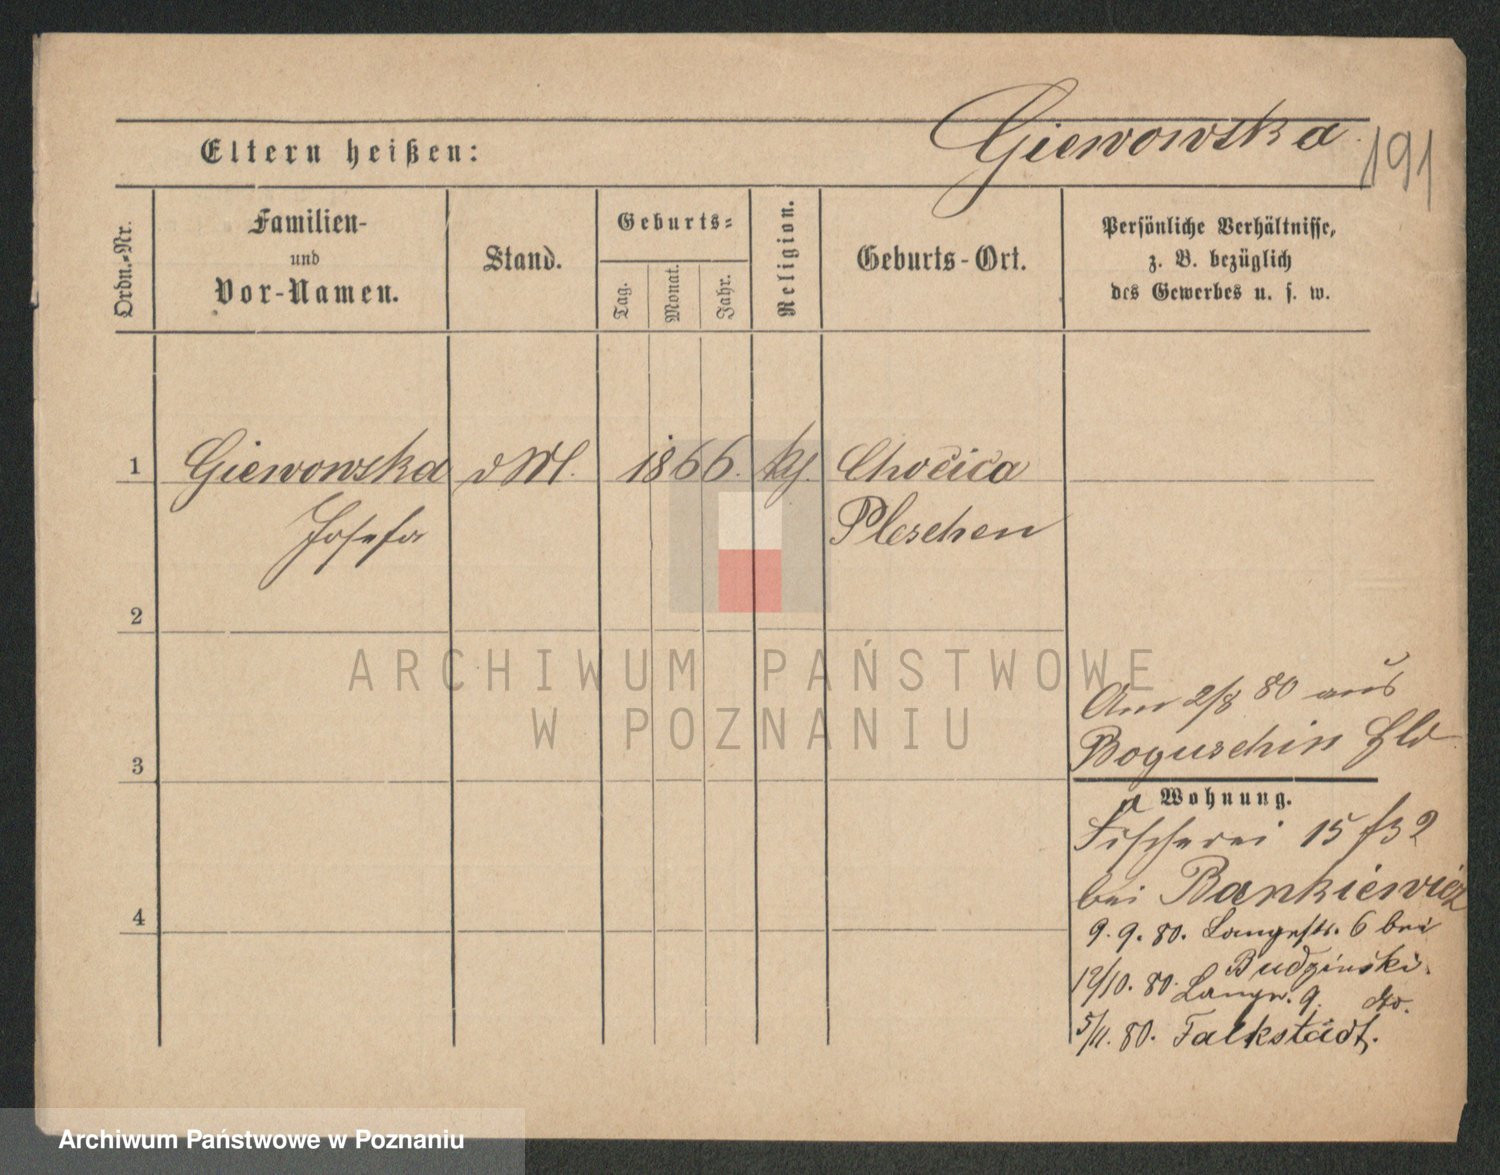 Giewowska
191
Eltern heißen:
Ordn.-Nr.
Familien-
und
Vor-Namen.
Stand.
Geburts-
Tag.
Monat.
Jahr.
Religion.
Geburts-Ort.
Persönliche Verhältnisse,
z. B. bezüglich
des Gewerbes u. s. w.
1 Giewowska 1866. Chocica
Josefa Pleschen
2
3
4
Am 2/8 80 aus
Boguschin
Wohnung.
Fischerei 15
bei Bankiewicz
9. 9. 80. Langestr. 6 bei
Budzinski.
12/10. 80. 9. do.
5/11. 80. Falkstädt.
ARCHIWUM PAŃSTWOWE
W POZNANIU
Archiwum Państwowe w Poznaniu